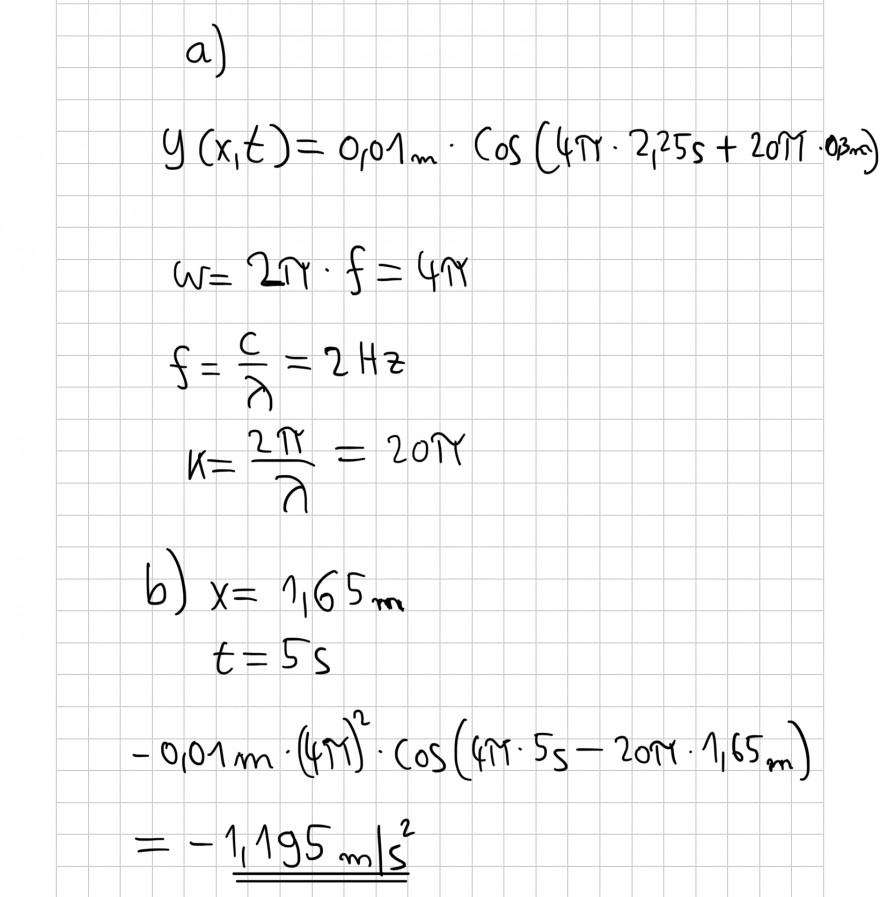 a)
y(x,t) = 0,01m · cos(4π · 2,25s + 20π · 0,3m)
w = 2π · f = 4π
f = c/λ = 2 Hz
k = 2π/λ = 20π
b) x = 1,65m
t = 5s
-0,01m · (4π)² · cos(4π · 5s - 20π · 1,65m)
= -1,195 m/s²